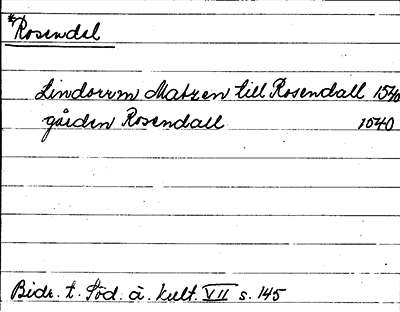 *) Rosendal
Lindorm Matzen till Rosendall 1540
gården Rosendall 1540
Bidr. t. Söd. å. kult. VII s. 145